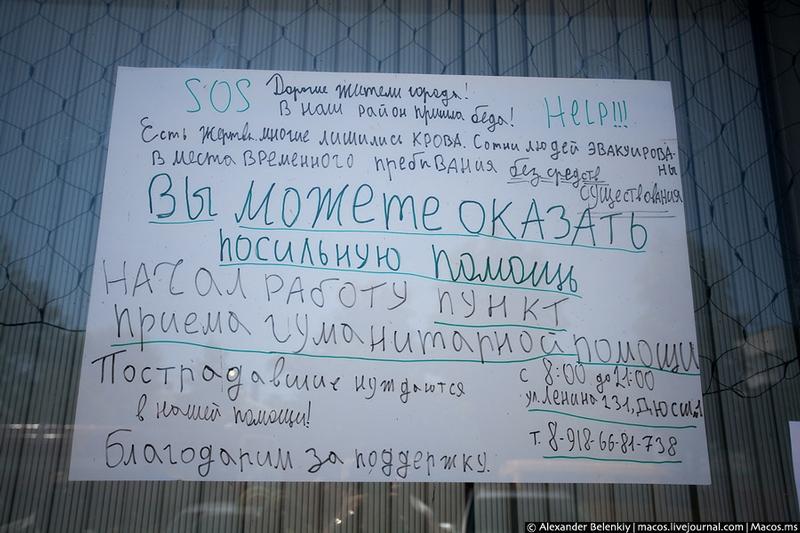 SOS Дорогие жители города! HELP!!!
В наш район пришла беда!
Есть жертвы. многие лишились крова. Сотни людей эвакуированы
в места временного пребывания без средств
существования
Вы можете оказать
посильную помощь
Начал работу пункт
приема гуманитарной помощи
с 8:00 до 21:00
Пострадавшие нуждаются
ул. Ленина 231, ДЮСШ 1
в нашей помощи!
т. 8-918-66-81-738
Благодарим за поддержку.
© Alexander Belenkiy | macos.livejournal.com | Macos.ms